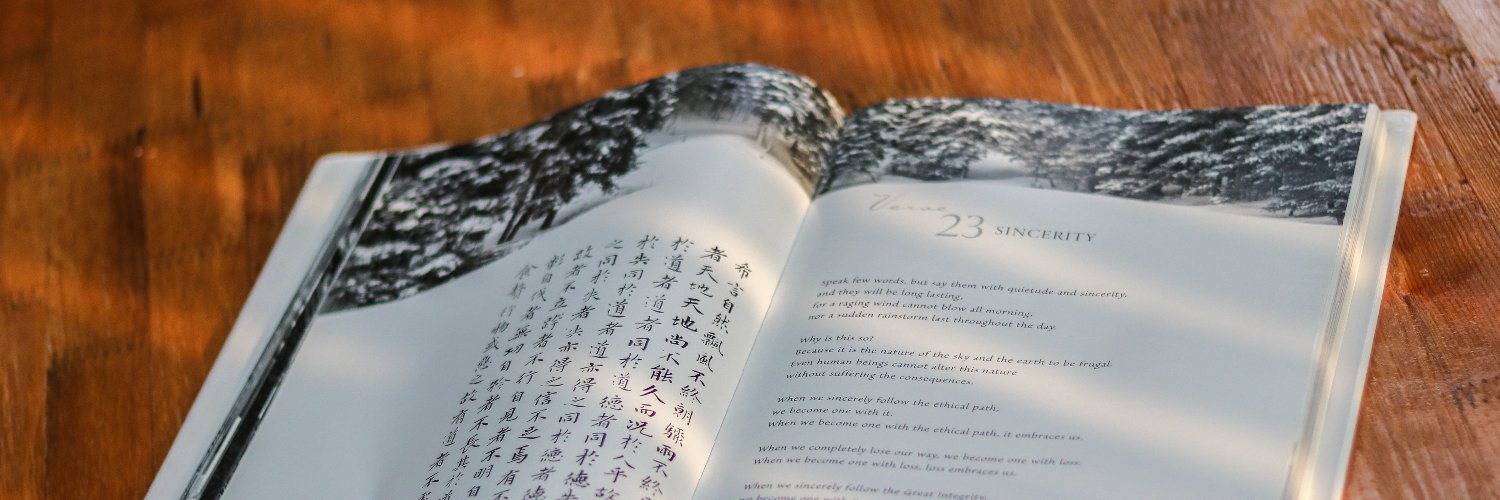 希言自然飄風不終朝驟雨不終
者天地天地尚不能久而況於人乎故
於道者道者同於道德者同於德失
於失同於道者道亦得之同於德者德
之同於失者失亦得之信不足焉有不
跂者不立跨者不行自見者不明自
彰自伐者無功自矜者不長其於道
食贅行物或惡之故有道者不
Verse
23 SINCERITY
Speak few words, but say them with quietude and sincerity,
and they will be long lasting,
for a raging wind cannot blow all morning,
nor a sudden rainstorm last throughout the day.
Why is this so?
Because it is the nature of the sky and the earth to be frugal.
Even human beings cannot alter this nature
without suffering the consequences.
When we sincerely follow the ethical path,
we become one with it.
When we become one with the ethical path, it embraces us.
When we completely lose our way, we become one with loss.
When we become one with loss, loss embraces us.
When we sincerely follow the Great Integrity,
we become one with it.